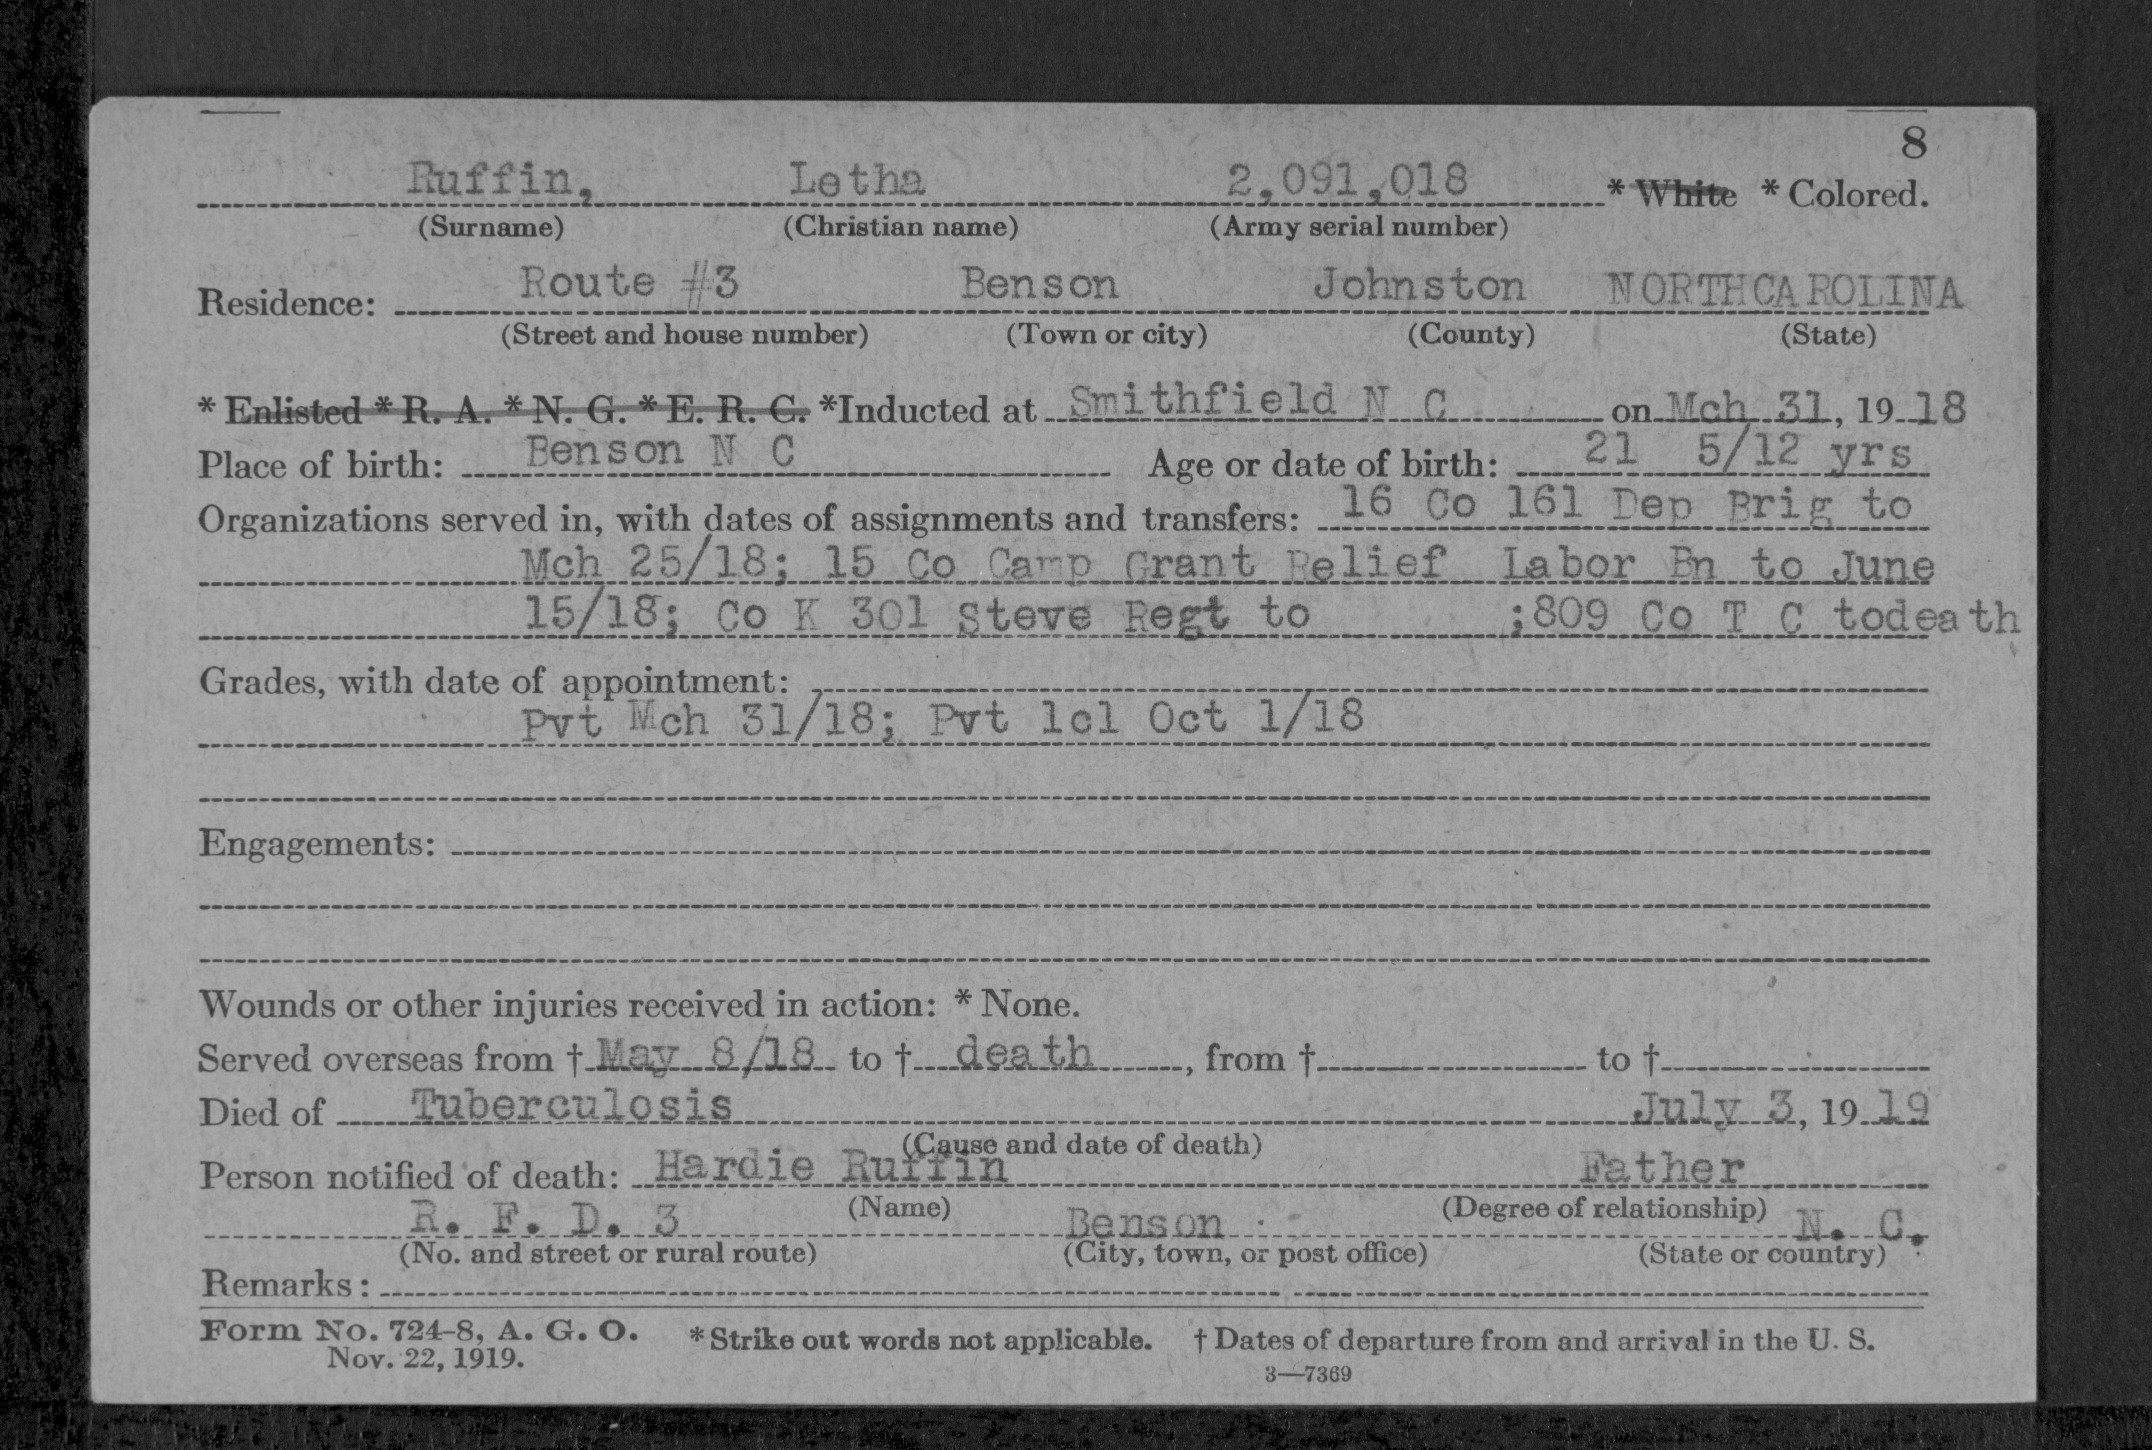 8
Ruffin, Letha 2,091,018 * White * Colored.
(Surname) (Christian name) (Army serial number)
Residence: Route #3 Benson Johnston NORTHCAROLINA
(Street and house number) (Town or city) (County) (State)
* Enlisted * R. A. * N. G. * E. R. C. *Inducted at Smithfield N C on Mch 31, 19 18
Place of birth: Benson N C Age or date of birth: 21 5/12 yrs
Organizations served in, with dates of assignments and transfers: 16 Co 161 Dep Brig to
Mch 25/18; 15 Co Camp Grant Relief Labor Bn to June
15/18; Co K 301 Steve Regt to ;809 Co T C todeath
Grades, with date of appointment:
Pvt Mch 31/18; Pvt 1cl Oct 1/18
Engagements:
Wounds or other injuries received in action: * None.
Served overseas from † May 8/18 to † death, from † to †
Died of Tuberculosis July 3, 19 19
(Cause and date of death)
Person notified of death: Hardie Ruffin Father
(Name) (Degree of relationship)
R. F. D. 3 Benson N. C.
(No. and street or rural route) (City, town, or post office) (State or country)
Remarks:
Form No. 724-8, A. G. O. * Strike out words not applicable. † Dates of departure from and arrival in the U. S.
Nov. 22, 1919.
3—7369